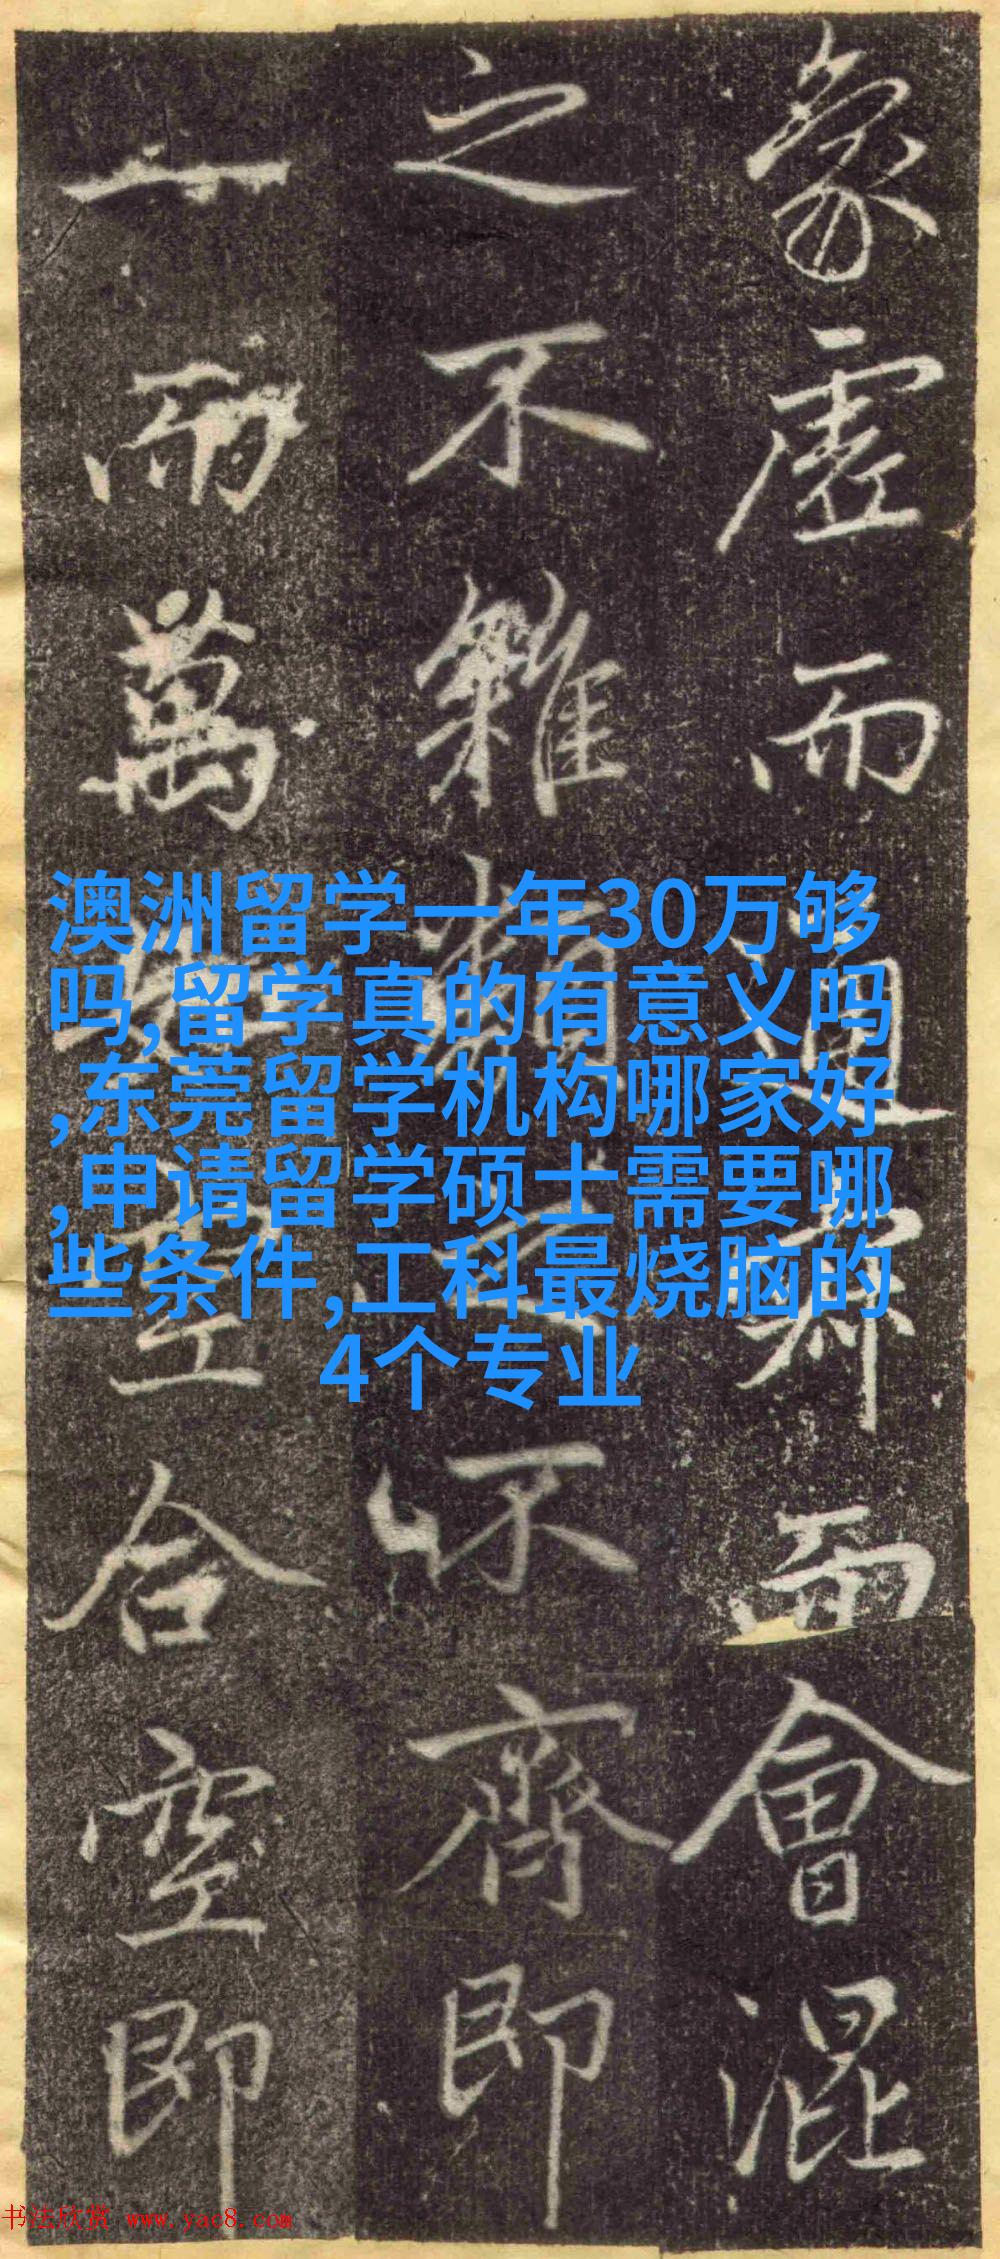 象虚而通寂而會混
之不雜類之不齊即
一而萬
合空即
澳洲留学一年30万够
吗,留学真的有意义吗
,东莞留学机构哪家好
,申请留学硕士需要哪
些条件,工科最烧脑的
4个专业
书法欣赏 www.yac8.com